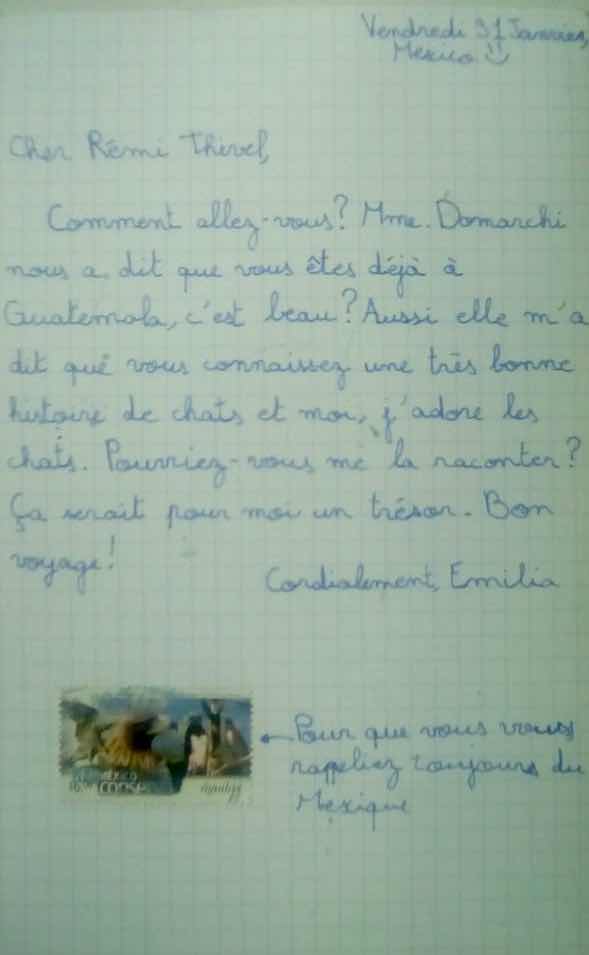 Vendredi 31 Janvier,
Mexico
Cher Rémi Thivel,
Comment allez-vous? Mme. Domarchi
nous a dit que vous êtes déjà à
Guatemala, c'est beau? Aussi elle m'a
dit que vous connaissez une très bonne
histoire de chats et moi, j'adore les
chats. Pourriez-vous me la raconter?
Ça serait pour moi un trésor. Bon
voyage!
Cordialement, Emilia
Pour que vous vous
rappeliez toujours du
Mexique
MÉXICO
conse
águilas